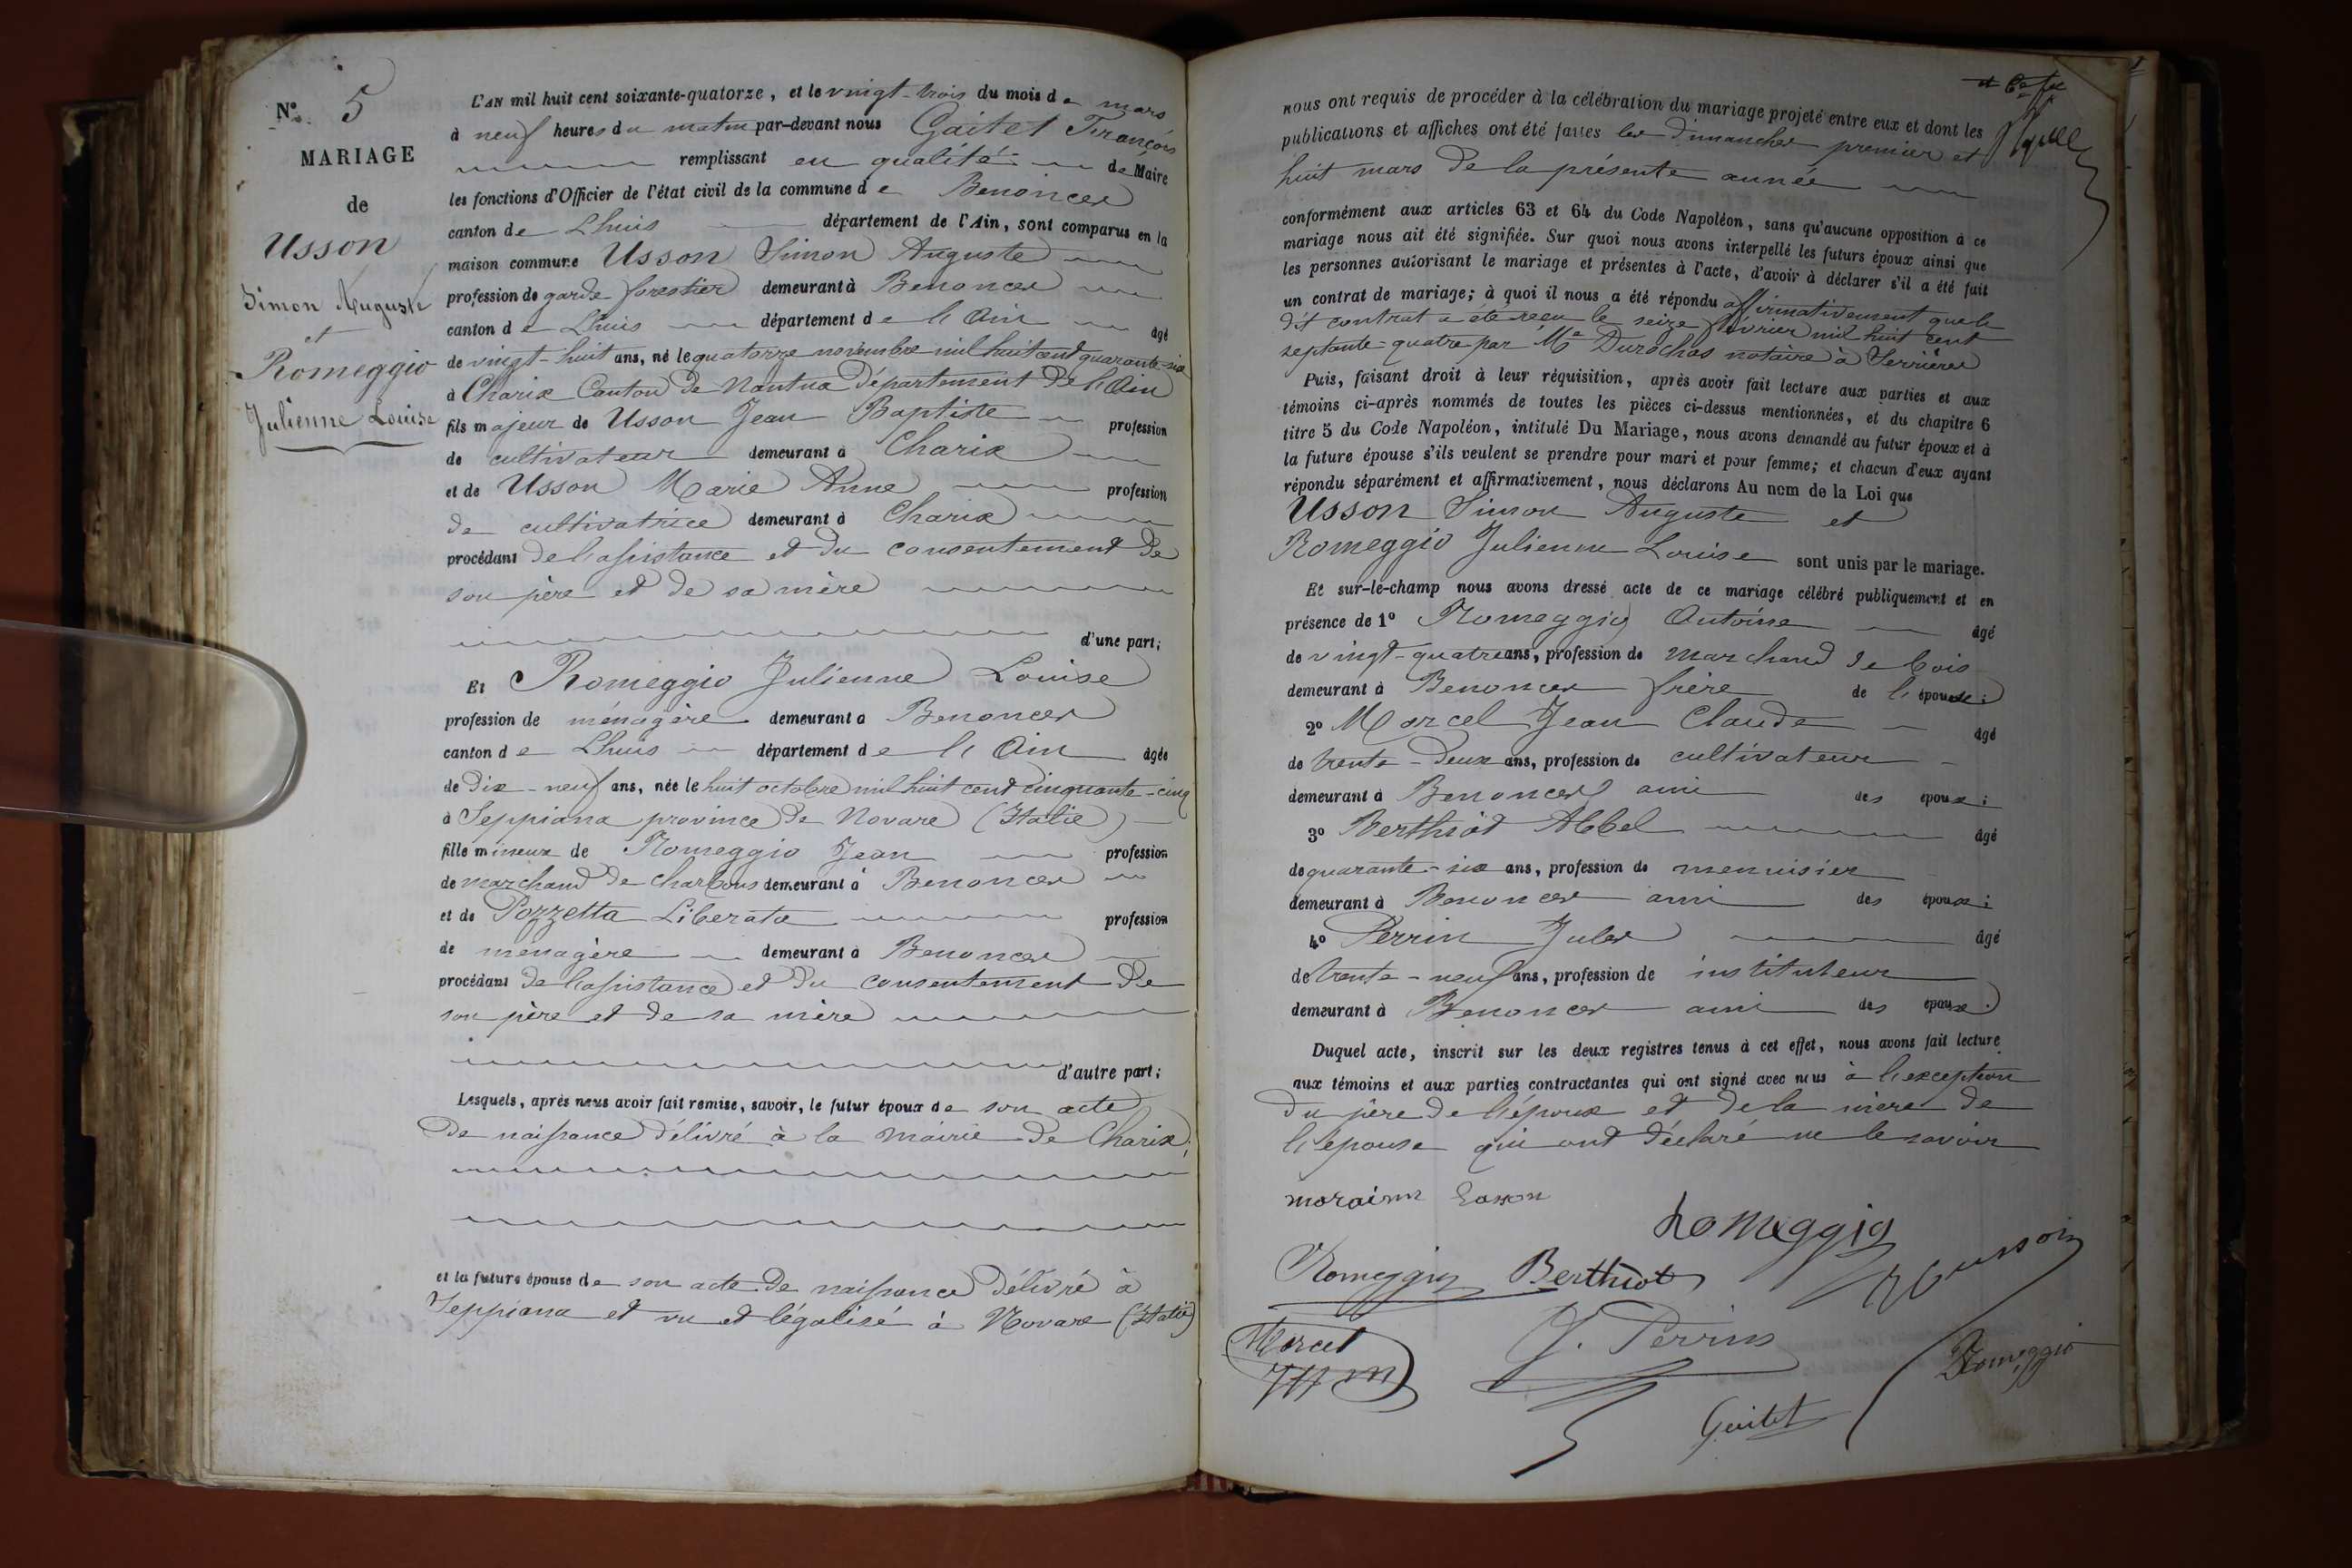 N° 5
MARIAGE
de
Usson
Simon Auguste
et
Romeggio
Julienne Louise
L'AN mil huit cent soixante-quatorze, et le vingt-trois du mois de mars
à neuf heures du matin par-devant nous Gaitet François
remplissant en qualité de Maire
les fonctions d'Officier de l'état civil de la commune de Benonces
canton de Lhuis département de l'Ain, sont comparus en la
maison commune Usson Simon Auguste
profession de garde forestier demeurant à Benonces
canton de Lhuis département de l'Ain âgé
de vingt-huit ans, né le quatorze novembre mil huit cent quarante-six
à Charix Canton de Nantua Département de l'Ain
fils majeur de Usson Jean Baptiste profession
de cultivateur demeurant à Charix
et de Usson Marie Anne profession
de cultivatrice demeurant à Charix
procédant de l'assistance et du consentement de
son père et de sa mère
d'une part;
Et Romeggio Julienne Louise
profession de ménagère demeurant à Benonces
canton de Lhuis département de l'Ain âgée
de dix-neuf ans, née le huit octobre mil huit cent cinquante-cinq
à Seppiana province de Novare (Italie)
fille mineure de Romeggio Jean profession
de marchand de charbons demeurant à Benonces
et de Pozzetta Liberata profession
de ménagère demeurant à Benonces
procédant de l'assistance et du consentement de
son père et de sa mère
d'autre part;
Lesquels, après nous avoir fait remise, savoir, le futur époux de son acte
de naissance délivré à la mairie de Charix,
et la future épouse de son acte de naissance délivré à
Seppiana et vu et légalisé à Novare (Italie)
nous ont requis de procéder à la célébration du mariage projeté entre eux et dont les
publications et affiches ont été faites les dimanches premier et
huit mars de la présente année
conformément aux articles 63 et 64 du Code Napoléon, sans qu'aucune opposition à ce
mariage nous ait été signifiée. Sur quoi nous avons interpellé les futurs époux ainsi que
les personnes autorisant le mariage et présentes à l'acte, d'avoir à déclarer s'il a été fait
un contrat de mariage; à quoi il nous a été répondu affirmativement que le
dit contrat a été reçu le seize février mil huit cent
septante-quatre par Me Durochas notaire à Serrières
Puis, faisant droit à leur réquisition, après avoir fait lecture aux parties et aux
témoins ci-après nommés de toutes les pièces ci-dessus mentionnées, et du chapitre 6
titre 5 du Code Napoléon, intitulé Du Mariage, nous avons demandé au futur époux et à
la future épouse s'ils veulent se prendre pour mari et pour femme; et chacun d'eux ayant
répondu séparément et affirmativement, nous déclarons Au nom de la Loi que
Usson Simon Auguste et
Romeggio Julienne Louise sont unis par le mariage.
Et sur-le-champ nous avons dressé acte de ce mariage célébré publiquement et en
présence de 1° Romeggio Antoine âgé
de vingt-quatre ans, profession de marchand de bois
demeurant à Benonces frère de l'épouse;
2° Marcel Jean Claude âgé
de trente-deux ans, profession de cultivateur
demeurant à Benonces ami des époux;
3° Berthiot Abbel âgé
de quarante-six ans, profession de menuisier
demeurant à Benonces ami des époux;
4° Perrin Jules âgé
de trente-neuf ans, profession de instituteur
demeurant à Benonces ami des époux.
Duquel acte, inscrit sur les deux registres tenus à cet effet, nous avons fait lecture
aux témoins et aux parties contractantes qui ont signé avec nous à l'exception
du père de l'époux et de la mère de
l'épouse qui ont déclaré ne le savoir
Romeggio
Romeggio Berthiot
Marcel J. Perrin
Romeggio
Gaitet